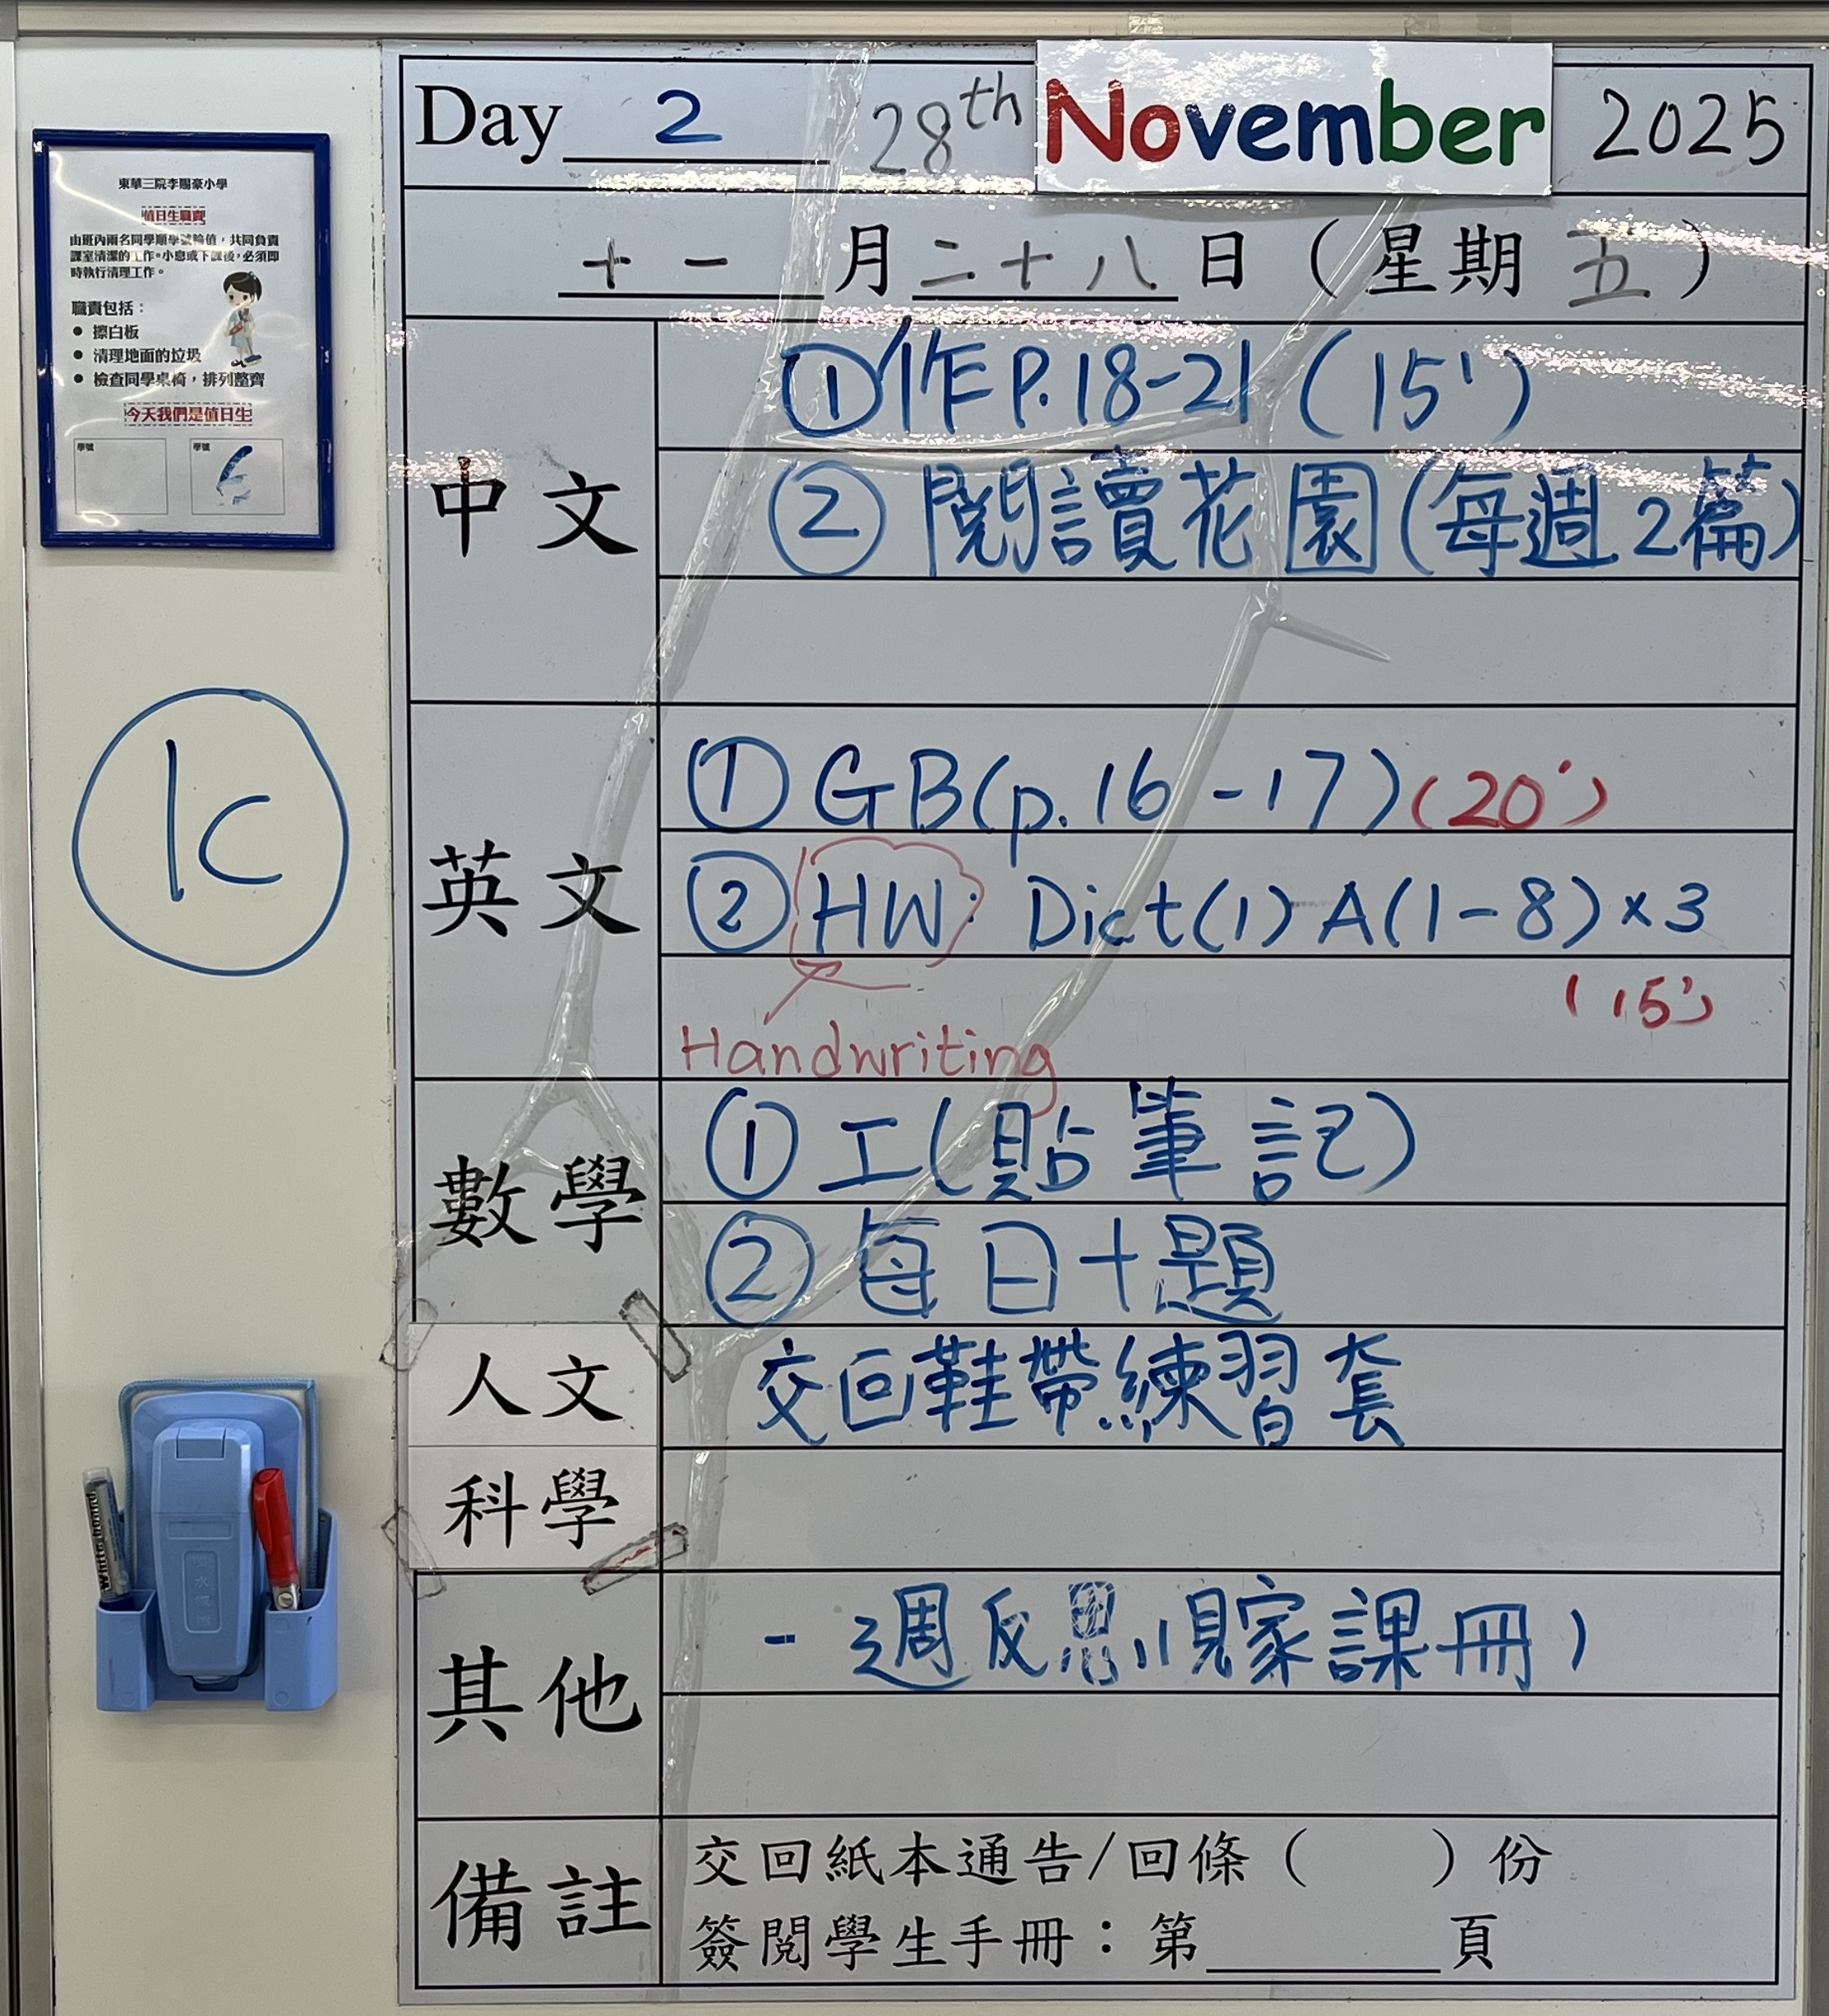 Day 2 28th November 2025
十一月二十八日（星期五）
中文
①作P.18-21 (15')
②閱讀花園(每週2篇)
英文
①GB(p.16-17)(20')
②HW: Dict(1) A(1-8)×3
(15')
Handwriting
數學
①工(貼筆記)
②每日十題
人文
交回鞋帶練習套
科學
其他
- 週反思(見家課冊)
備註
交回紙本通告/回條（ ）份
簽閱學生手冊：第＿＿＿頁
東華三院李賜豪小學
值日生職責
由班內兩名同學順學號輪值，共同負責
課室清潔的工作。小息或下課後，必須即
時執行清理工作。
職責包括：
● 擦白板
● 清理地面的垃圾
● 檢查同學桌椅，排列整齊
今天我們是值日生
學號
學號
1C
Whiteboard